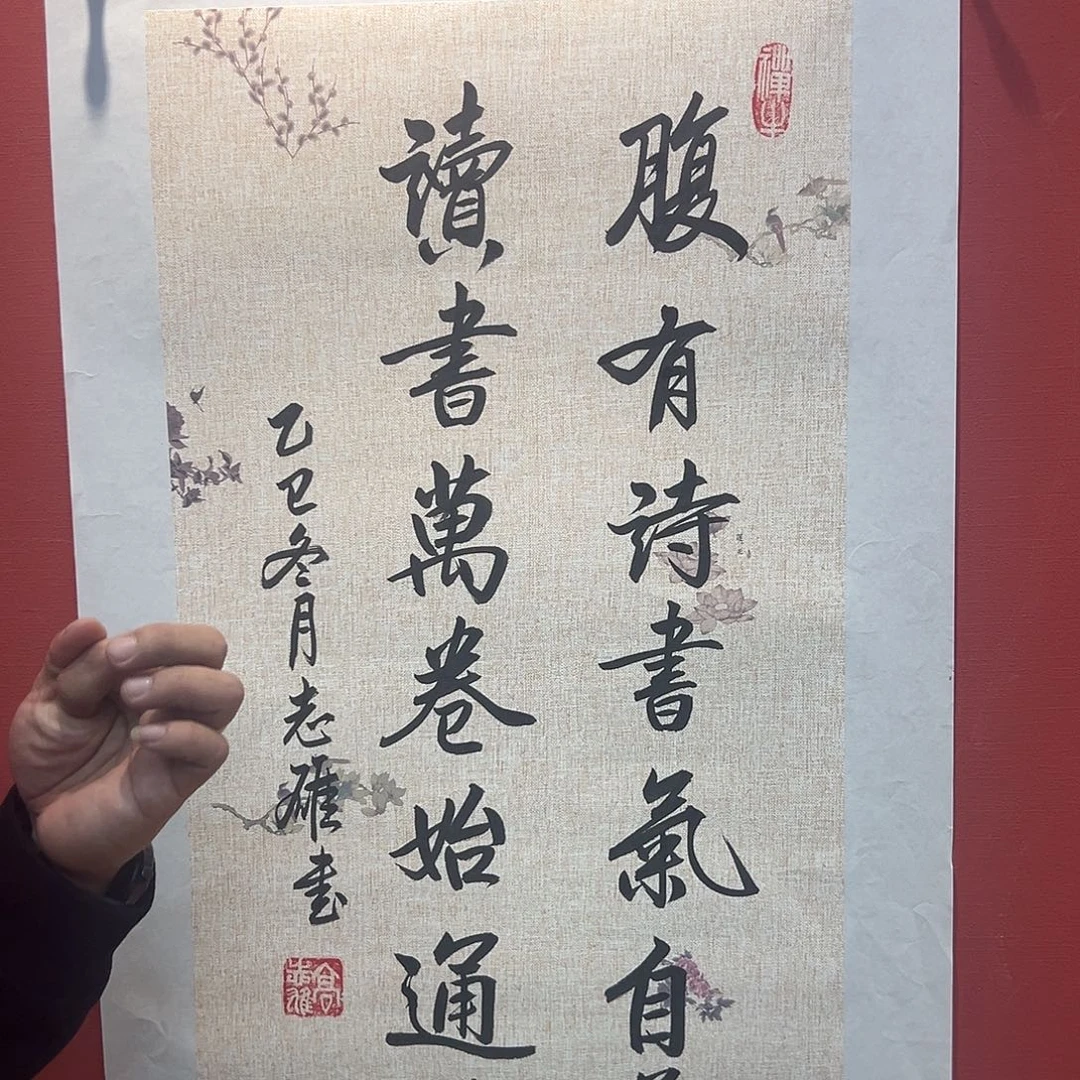 腹有詩書氣自
讀書萬卷始通
乙巳冬月志雄書